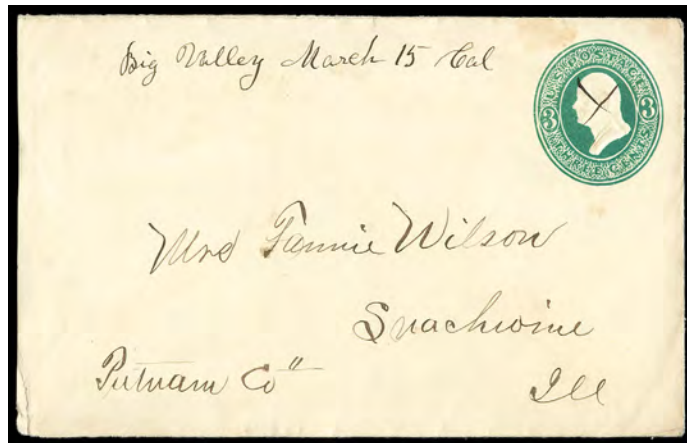 Big Valley March 15 Cal
U.S. POSTAGE
3 3
THREE CENTS
Mrs Fannie Wilson
Snachwine
Putnam Co"
Ill